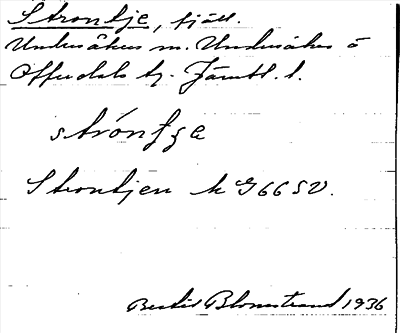 Strontje, fjäll.
Undersåkers m. Undersåkers o
Offerdals tg. Jämtl. l.
stróntʃe
Strontjen k G66SV.
Bertil Blomstrand 1936